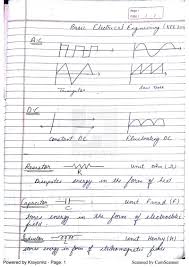 Page: 1
Date: 1 1
Basic Electrical Engineering (KEE 101)
A.C
Triangular Saw Tooth
D.C
Constant DC Fluctuating DC
Resistor R unit ohm (Ω)
Dissipates energy in the form of heat
Capacitor C unit Farad (F)
Stores energy in the form of electrostatic
field.
Inductor unit Henry (H)
Stores energy in form of electromagnetic field
Powered by Kreyonitz - Page: 1
Scanned by CamScanner